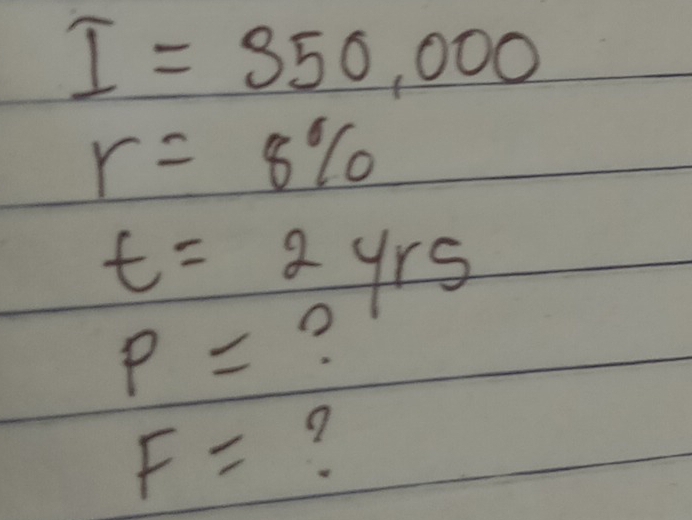 I = 350,000
r = 8%
t = 2 yrs
P = ?
F = ?